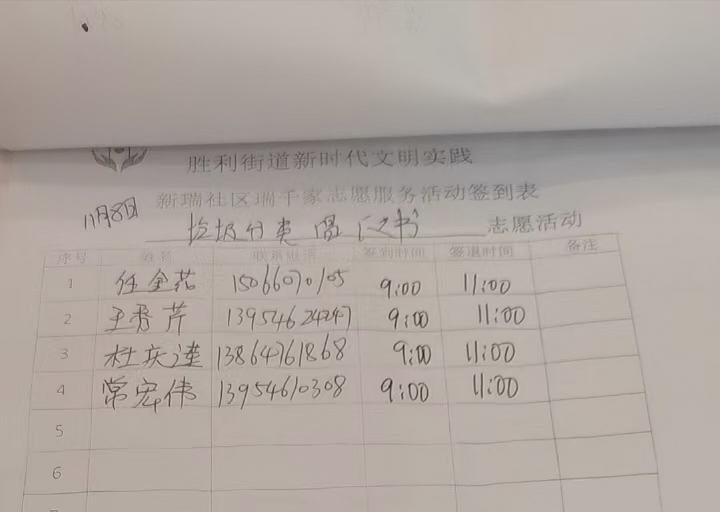 胜利街道新时代文明实践
新瑞社区瑞千家志愿服务活动签到表
11月8日 垃圾分类 志愿活动
序号 姓名 联系电话 签到时间 签退时间 备注
1 任金花 15066070105 9:00 11:00
2 王秀芹 13954624247 9:00 11:00
3 杜庆逵 13864761868 9:00 11:00
4 常宏伟 13954610308 9:00 11:00
5
6